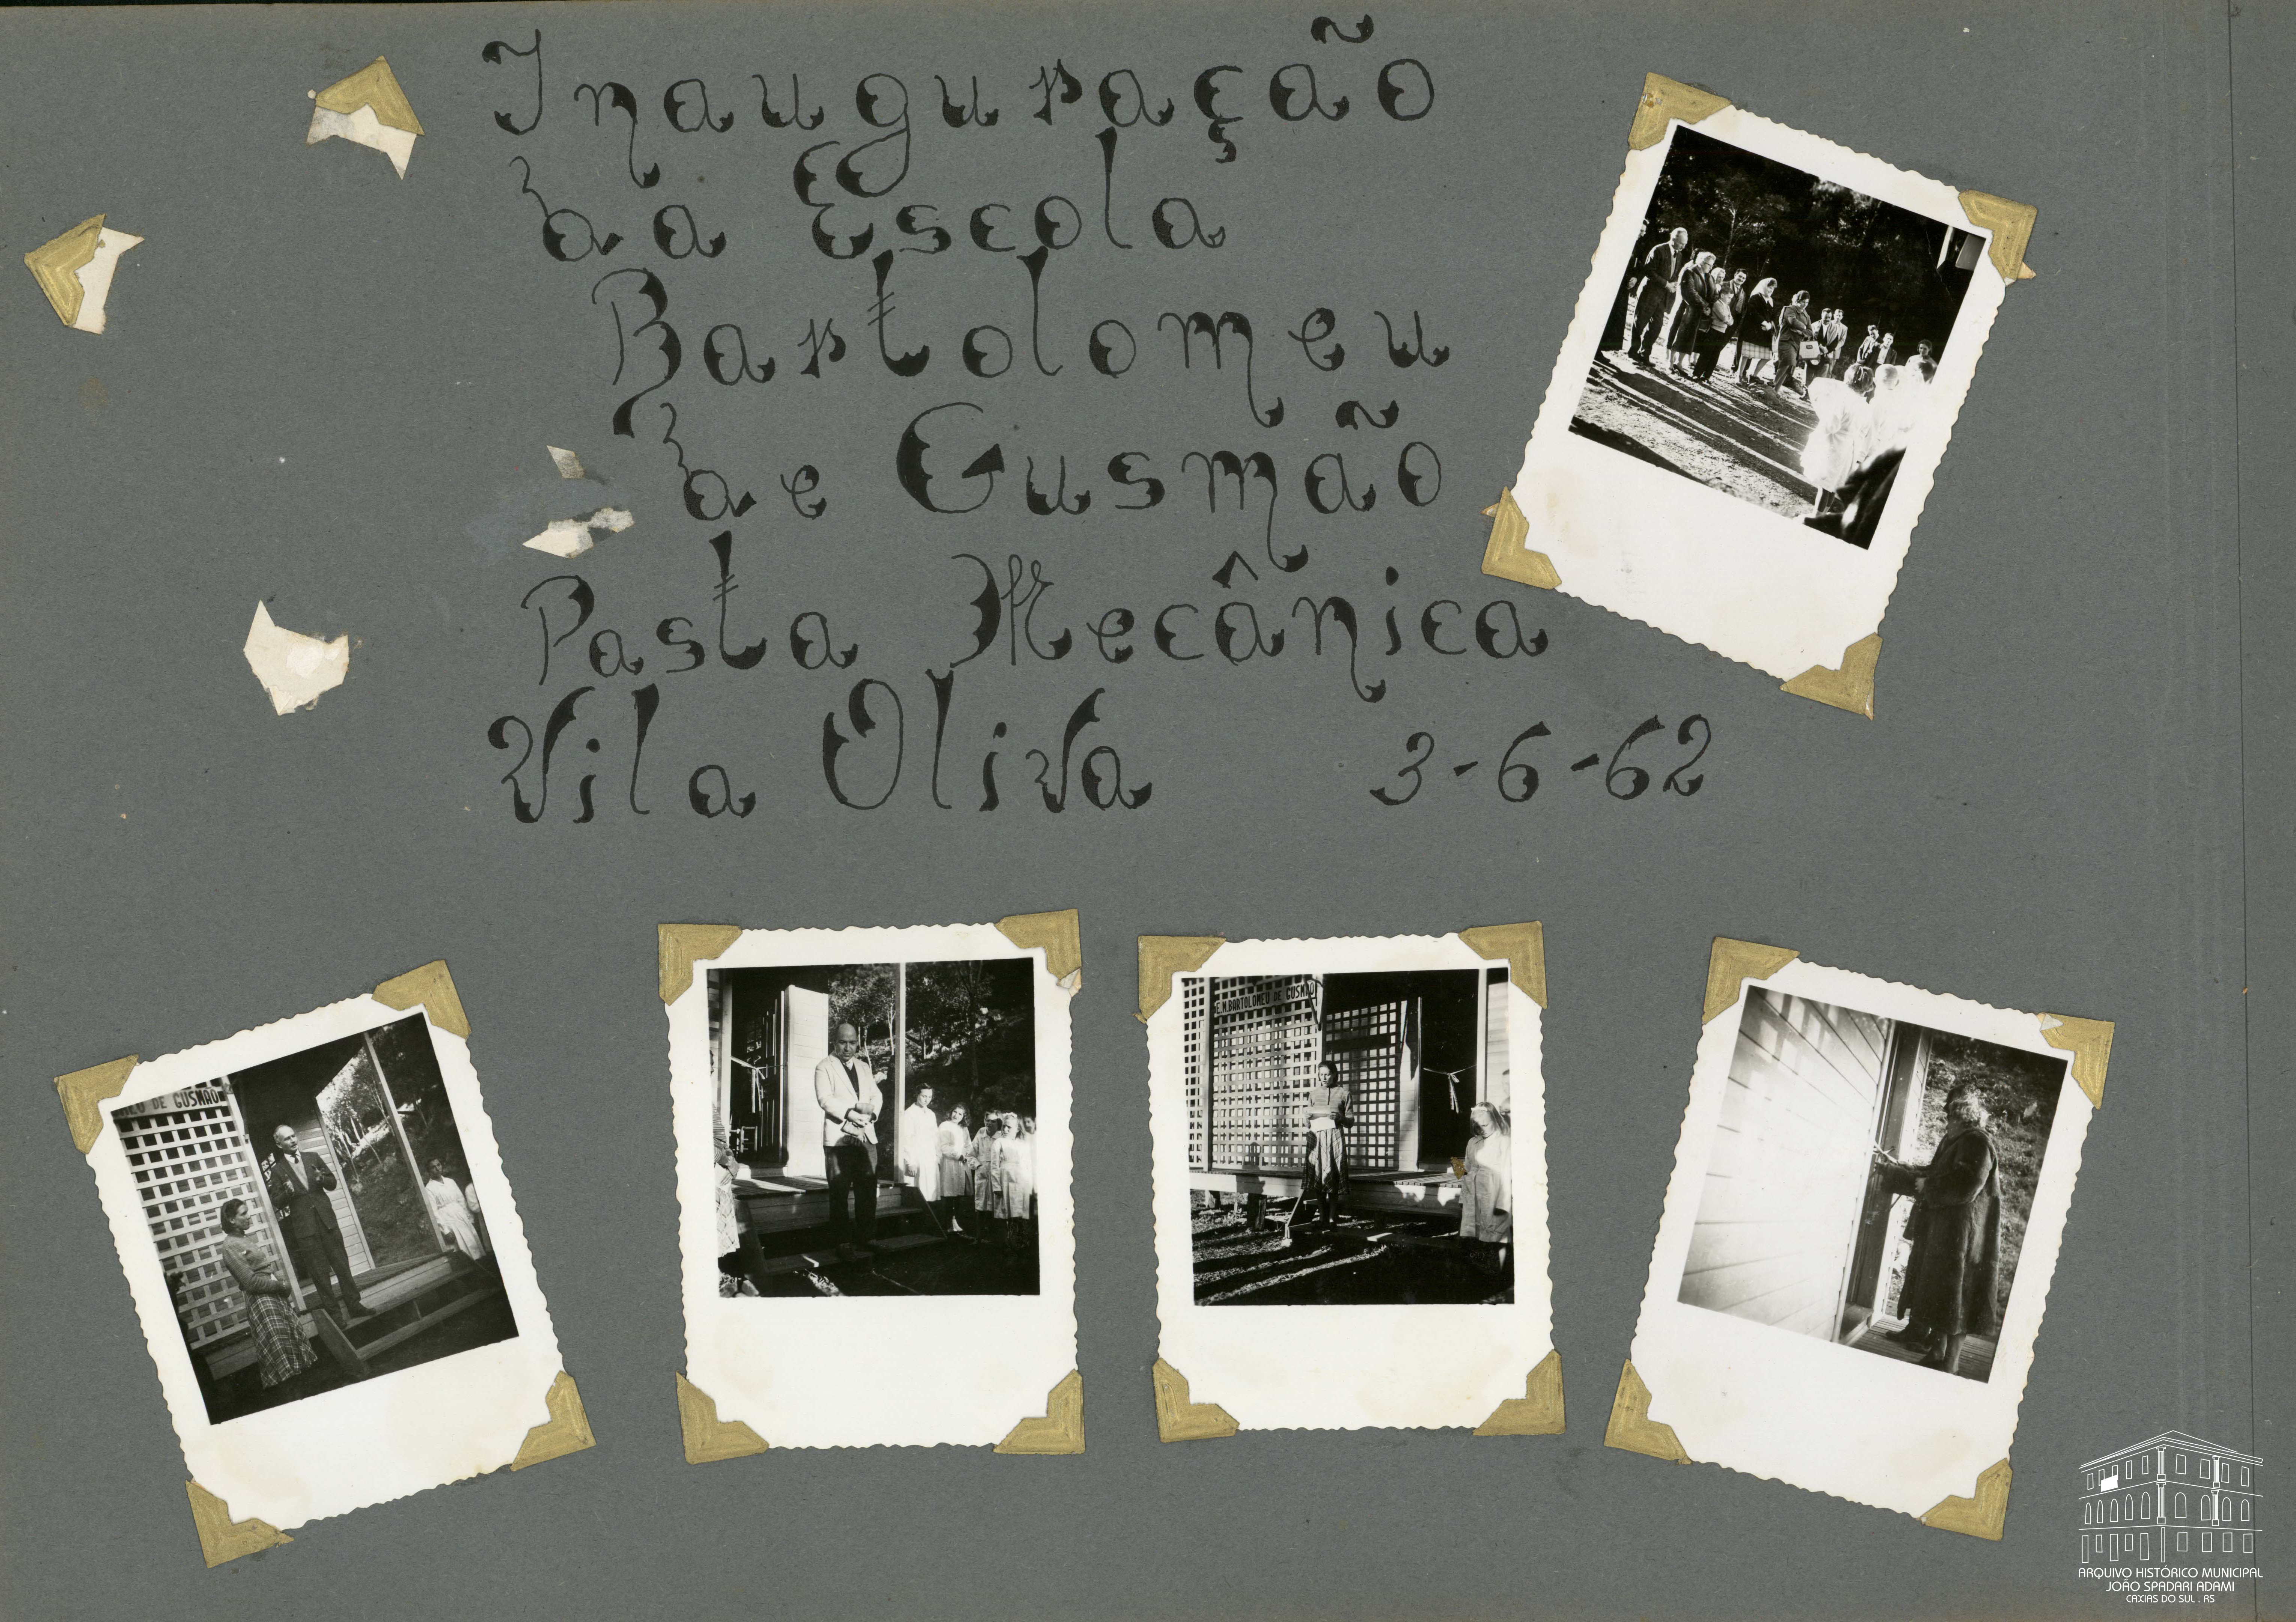 Inauguração
da Escola
Bartolomeu
de Gusmão
Pasta Mecânica
Vila Oliva 3-6-62
MEU DE GUSMÃO
E.M.BARTOLOMEU DE GUSMÃO
ARQUIVO HISTÓRICO MUNICIPAL
JOÃO SPADARI ADAMI
CAXIAS DO SUL . RS